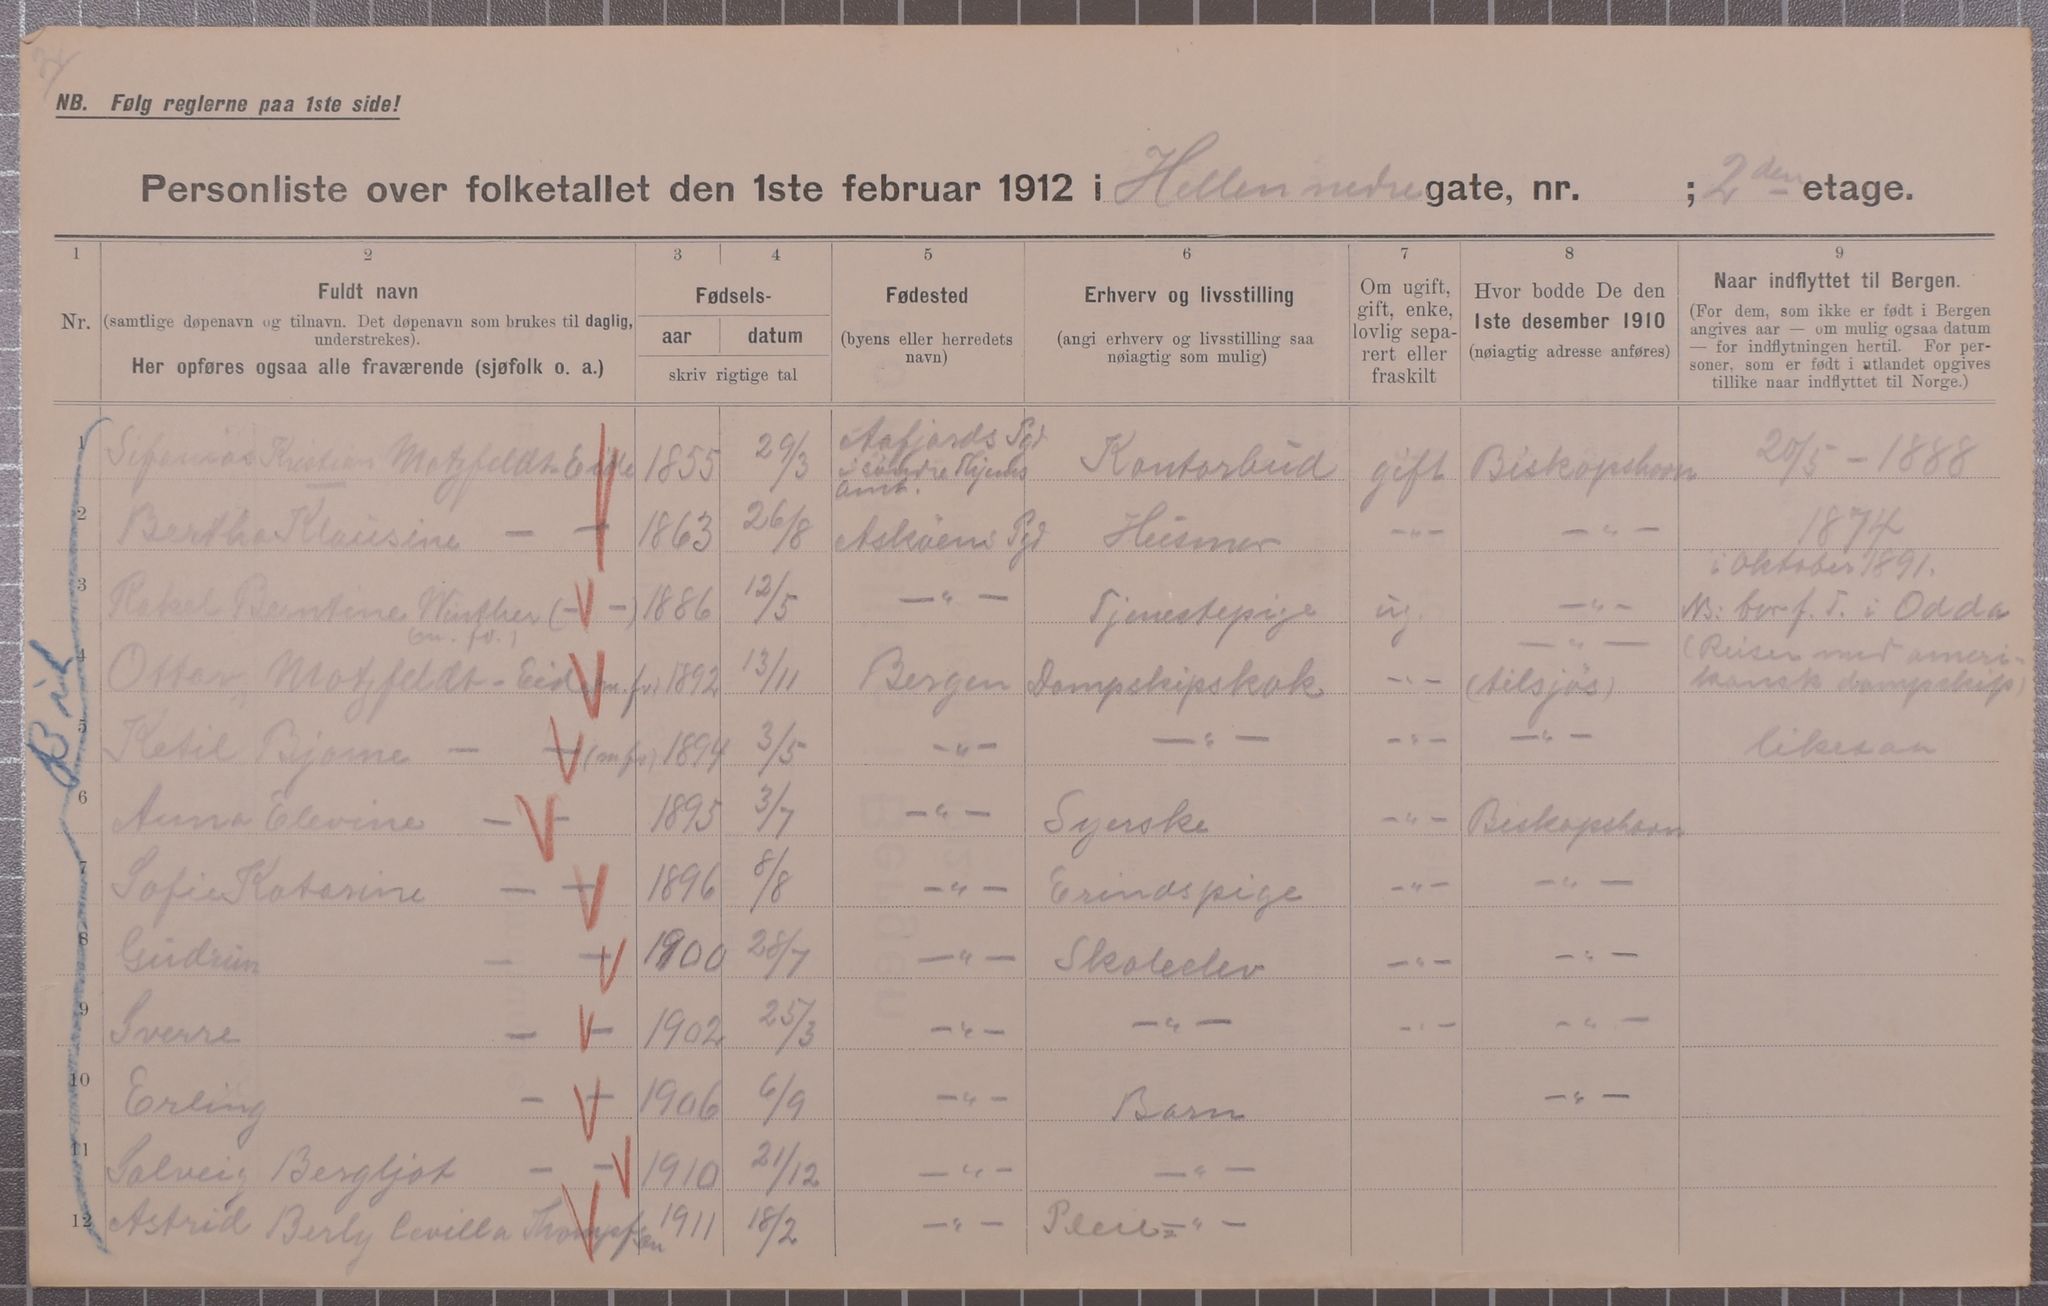 NB. Følg reglerne paa 1ste side!
Personliste over folketallet den 1ste februar 1912 i Hellen nedre gate, nr. ; 2den etage.
1 2 3 4 5 6 7 8 9
Nr.
Fuldt navn
(samtlige døpenavn og tilnavn. Det døpenavn som brukes til daglig, understrekes).
Her opføres ogsaa alle fraværende (sjøfolk o. a.)
Fødsels-
aar datum
skriv rigtige tal
Fødested
(byens eller herredets navn)
Erhverv og livsstilling
(angi erhverv og livsstilling saa nøiagtig som mulig)
Om ugift, gift, enke, lovlig separert eller fraskilt
Hvor bodde De den 1ste desember 1910
(nøiagtig adresse anføres)
Naar indflyttet til Bergen.
(For dem, som ikke er født i Bergen angives aar — om mulig ogsaa datum — for indflytningen hertil. For personer, som er født i utlandet opgives tillike naar indflyttet til Norge.)
Bik
1 Kristian Motzfeldt-Eide 1855 29/3 Aafjords Pgd Söndre Thjems amt. Kontorbud gift Biskopshavn 20/5 - 1888
2 Bertha Klausine — — 1863 26/8 Asköens Pgd Husmor -"- -"- 1874
3 Rakel Bentine Winther (- -) (m. fv.) 1886 12/5 -"- Tjenestepige ug. -"- i oktober 1891. NB: bor f. T. i Odda
4 Ottar Motzfeldt-Eide (m. fv.) 1892 13/11 Bergen Dampskipskok -"- -"- (tilsjös) (Reiser med amerikansk dampskip)
5 Ketil Bjarne — — (m. fv.) 1894 3/5 -"- -"- -"- -"- likesaa
6 Anna Elevine — — 1895 3/7 -"- Syerske -"- Biskopshavn
7 Sofie Katarine — — 1896 8/8 -"- Erindspige -"- -"-
8 Gudrun — — 1900 28/7 -"- Skoleelev -"- -"-
9 Sverre — — 1902 25/3 -"- -"- -"- -"-
10 Erling — — 1906 6/9 -"- Barn -"-
11 Solveig Bergljot — — 1910 21/12 -"- -"-
12 Astrid Berly Cevilla Thompsen 1911 18/2 -"- Pleie -"-